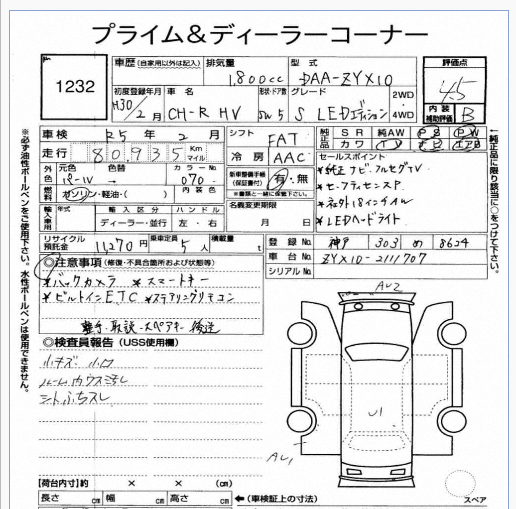 プライム＆ディーラーコーナー
1232
車歴 (自家用以外は記入) 排気量 1,800cc 型式 DAA-ZYX10
評価点 4.5
初度登録年月 H30/2月 車名 CH-R HV 形状・ドア数 5 グレード S LEDエディション 2WD 4WD
内装補助評価 B
車検 25年 2月 シフト FAT
純正品 SR 純AW PS PW カワ TV ナビ エアB
走行 80,935 Km マイル 冷房 AAC
セールスポイント
外色 元色 パール 色替 → カラーNo. 070 内装色
新車整備手帳 (保証書付) 有・無
*純正ナビ.フルセグTV
燃料 ガソリン・軽油・( )
*セーフティセンスP
名義変更期限 月 日
*社外18インチAW
輸入車用 年式 輸入区分 ディーラー・並行 ハンドル 左・右
*LEDヘッドライト
リサイクル預託金 11,270円 乗車定員 5人 積載量 t
登録No. 神戸 303 め 8624
車台No. ZYX10-2111707
シリアルNo.
◎注意事項 (修復・不具合箇所および状態等)
*バックカメラ *スマートキー
*ビルトインETC *ステアリングリモコン
整手・取説・スペアキー 後送
◎検査員報告 (USS使用欄)
小キズ 小凹
ルーム内ウス汚レ
シートふちスレ
AU2
U1
AU1
【荷台内寸】約 × × (cm)
長さ cm 幅 cm 高さ cm ←(車検証上の寸法)
スペア
※必ず油性ボールペンをご使用下さい。水性ボールペンは使用できません。
↑純正品に限り該当に○をつけて下さい。